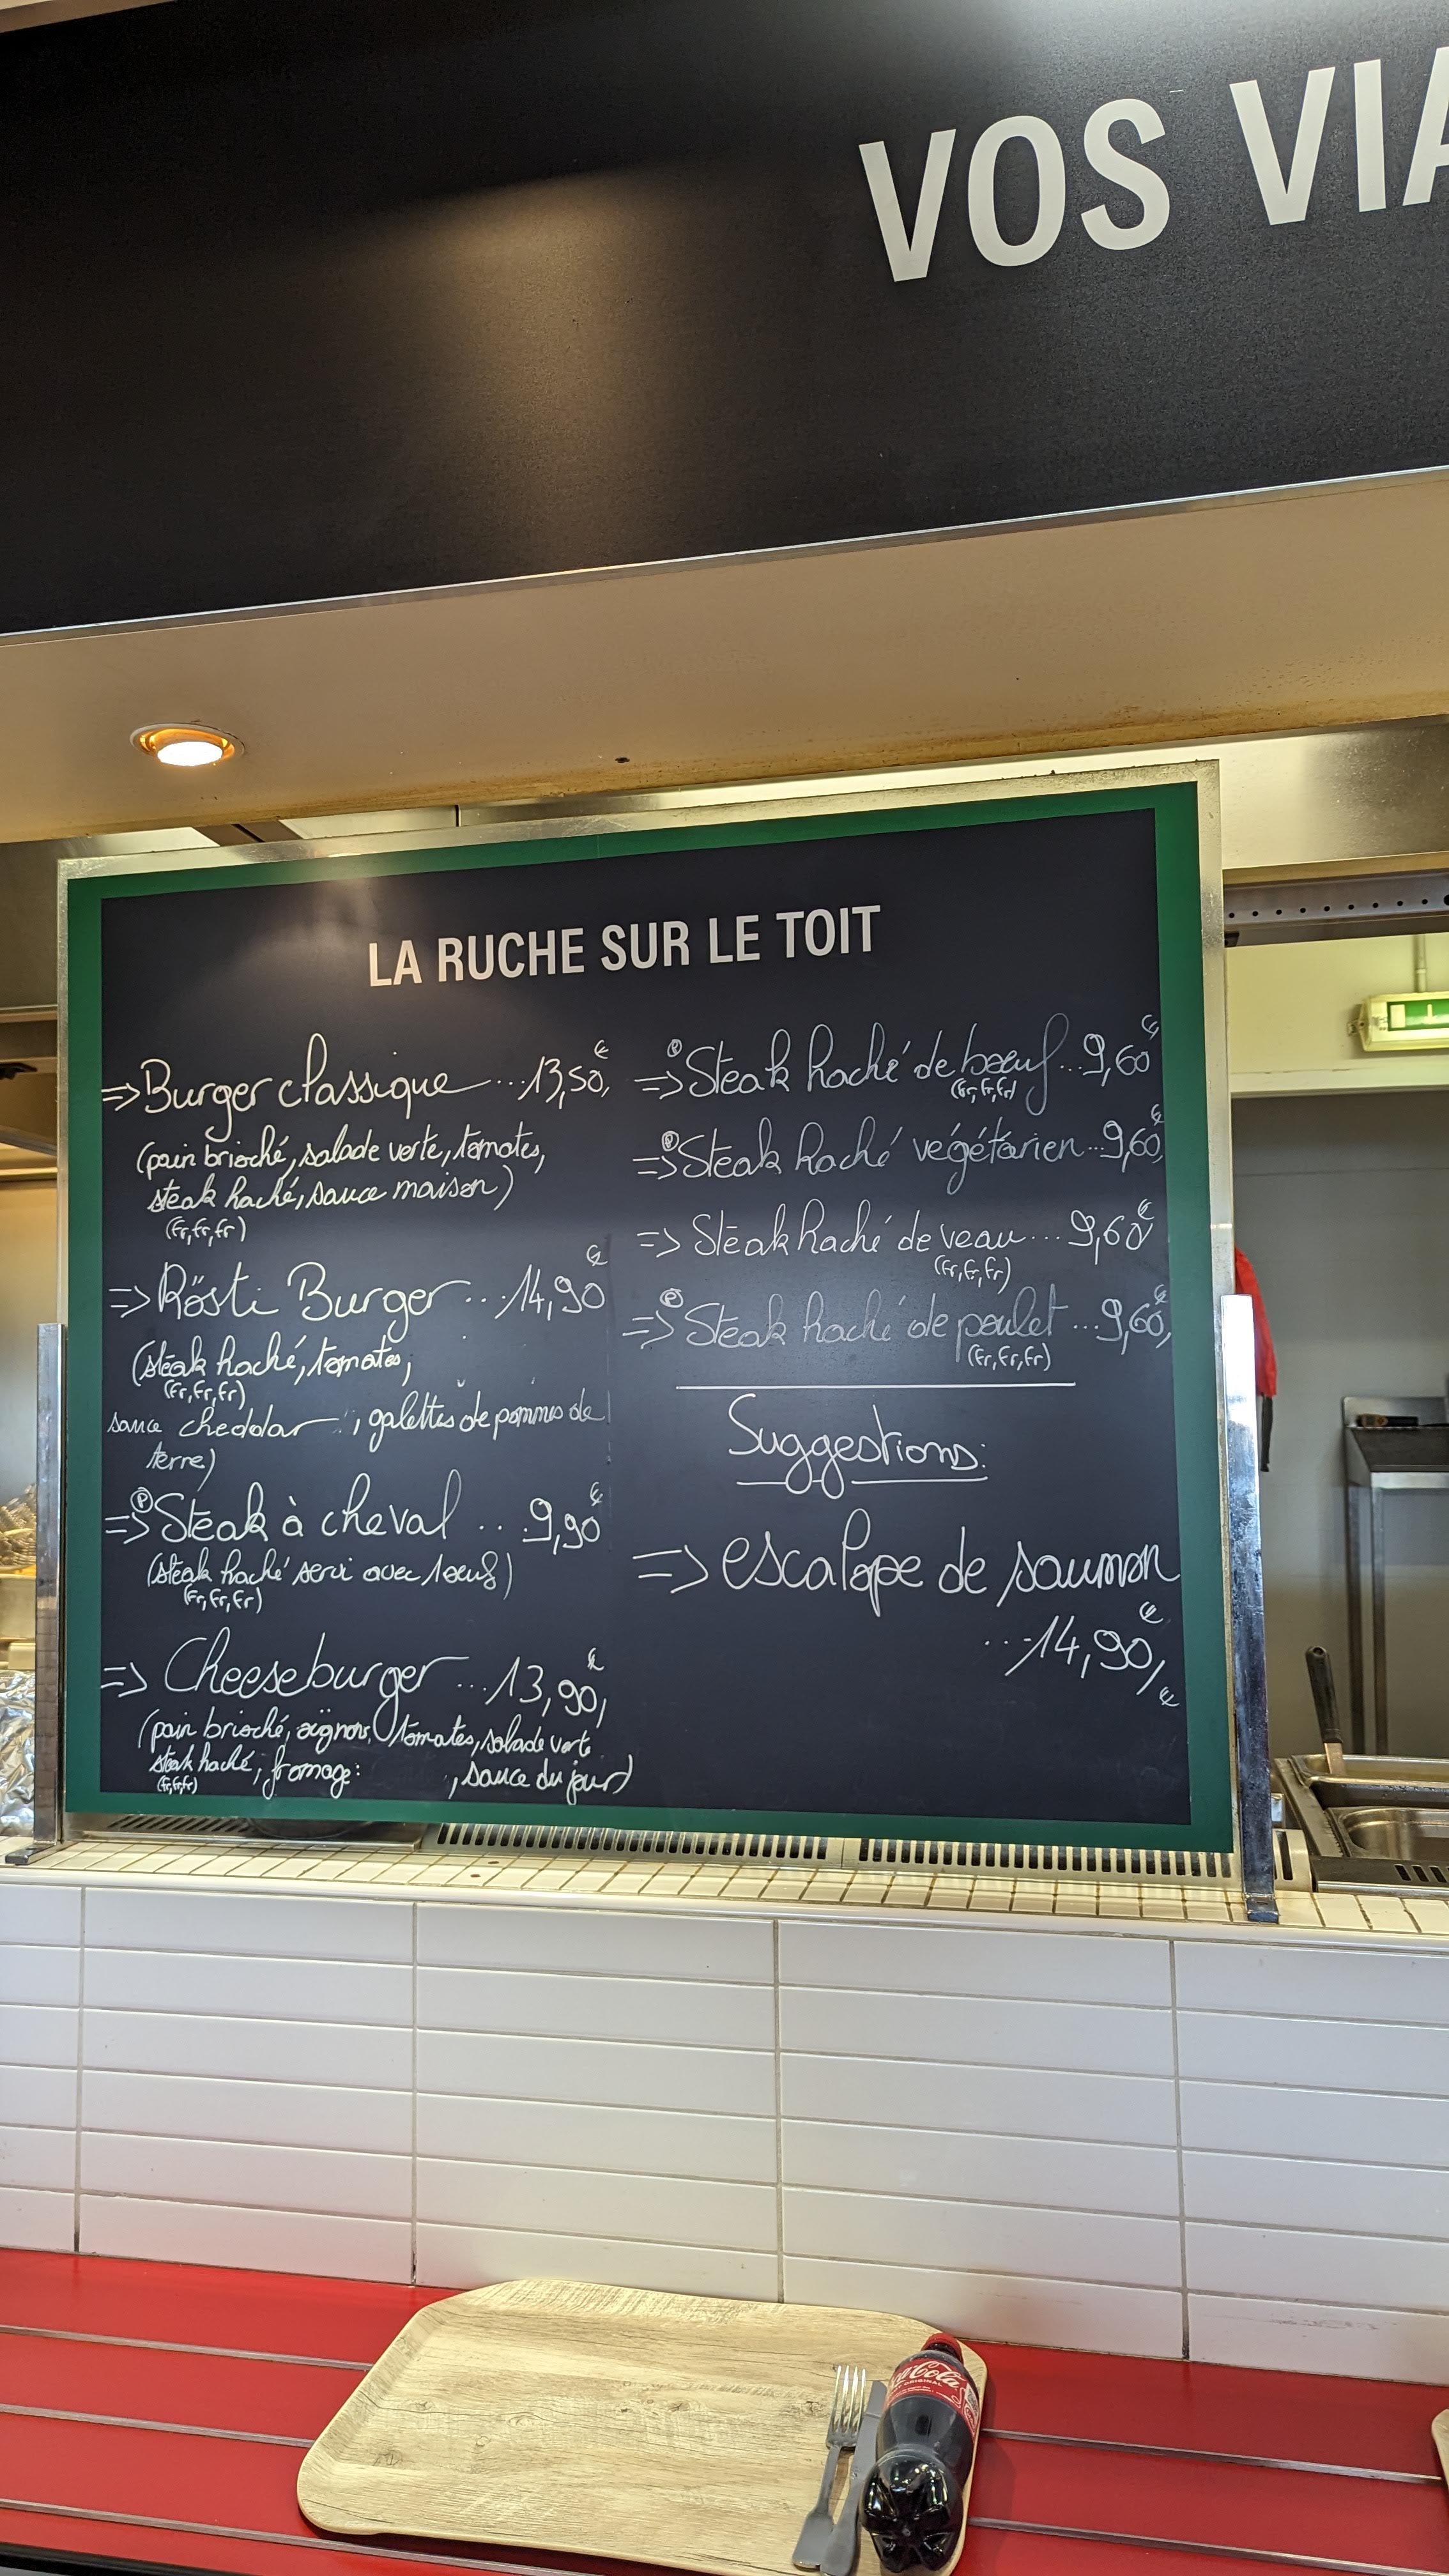 VOS VIA
LA RUCHE SUR LE TOIT
=> Burger classique ... 13,50€
(pain brioché, salade verte, tomates,
steak haché, sauce maison)
(Fr, Fr, Fr)
=> Rösti Burger ... 14,90€
(steak haché, tomates,
(Fr, Fr, Fr)
sauce cheddar , galettes de pommes de
terre)
=> Ⓟ Steak à cheval ... 9,90€
(steak haché servi avec 1 oeuf)
(Fr, Fr, Fr)
=> Cheeseburger ... 13,90€
(pain brioché, oignons, tomates, salade verte
steak haché, fromage: , sauce du jour)
(Fr, Fr, Fr)
=> Ⓟ Steak haché de boeuf ... 9,60€
(Fr, Fr, Fr)
=> Ⓟ Steak haché végétarien ... 9,60€
=> Steak haché de veau ... 9,60€
(Fr, Fr, Fr)
=> Ⓟ Steak haché de poulet ... 9,60€
(Fr, Fr, Fr)
Suggestions:
=> escalope de saumon
... 14,90€
Coca-Cola
ORIGINAL